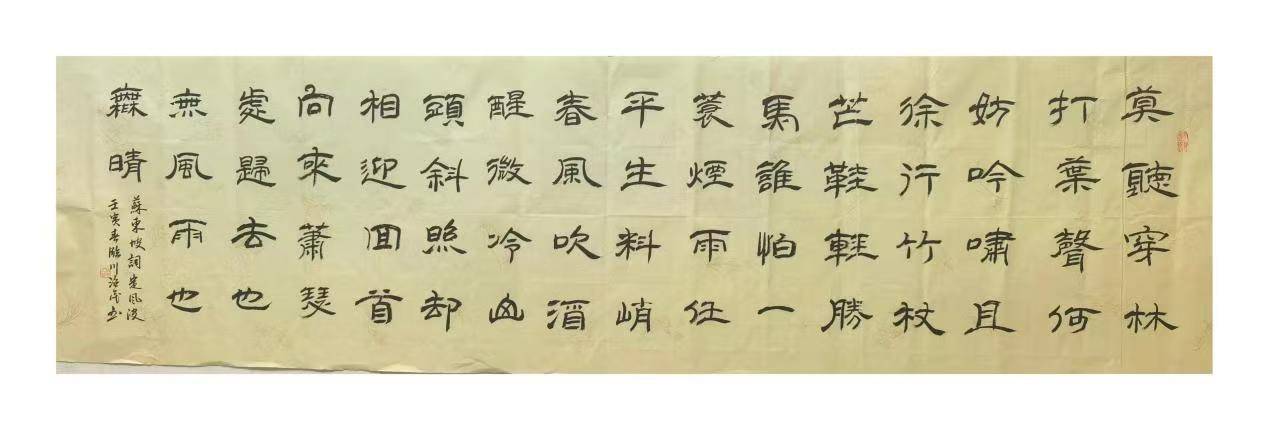 莫聽穿林
打葉聲何
妨吟嘯且
徐行竹杖
芒鞋輕勝
馬誰怕一
蓑煙雨任
平生料峭
春風吹酒
醒微冷山
頭斜照却
相迎回首
向來蕭瑟
處歸去也
無風雨也
無晴
蘇東坡詞定風波
壬寅春臨川书